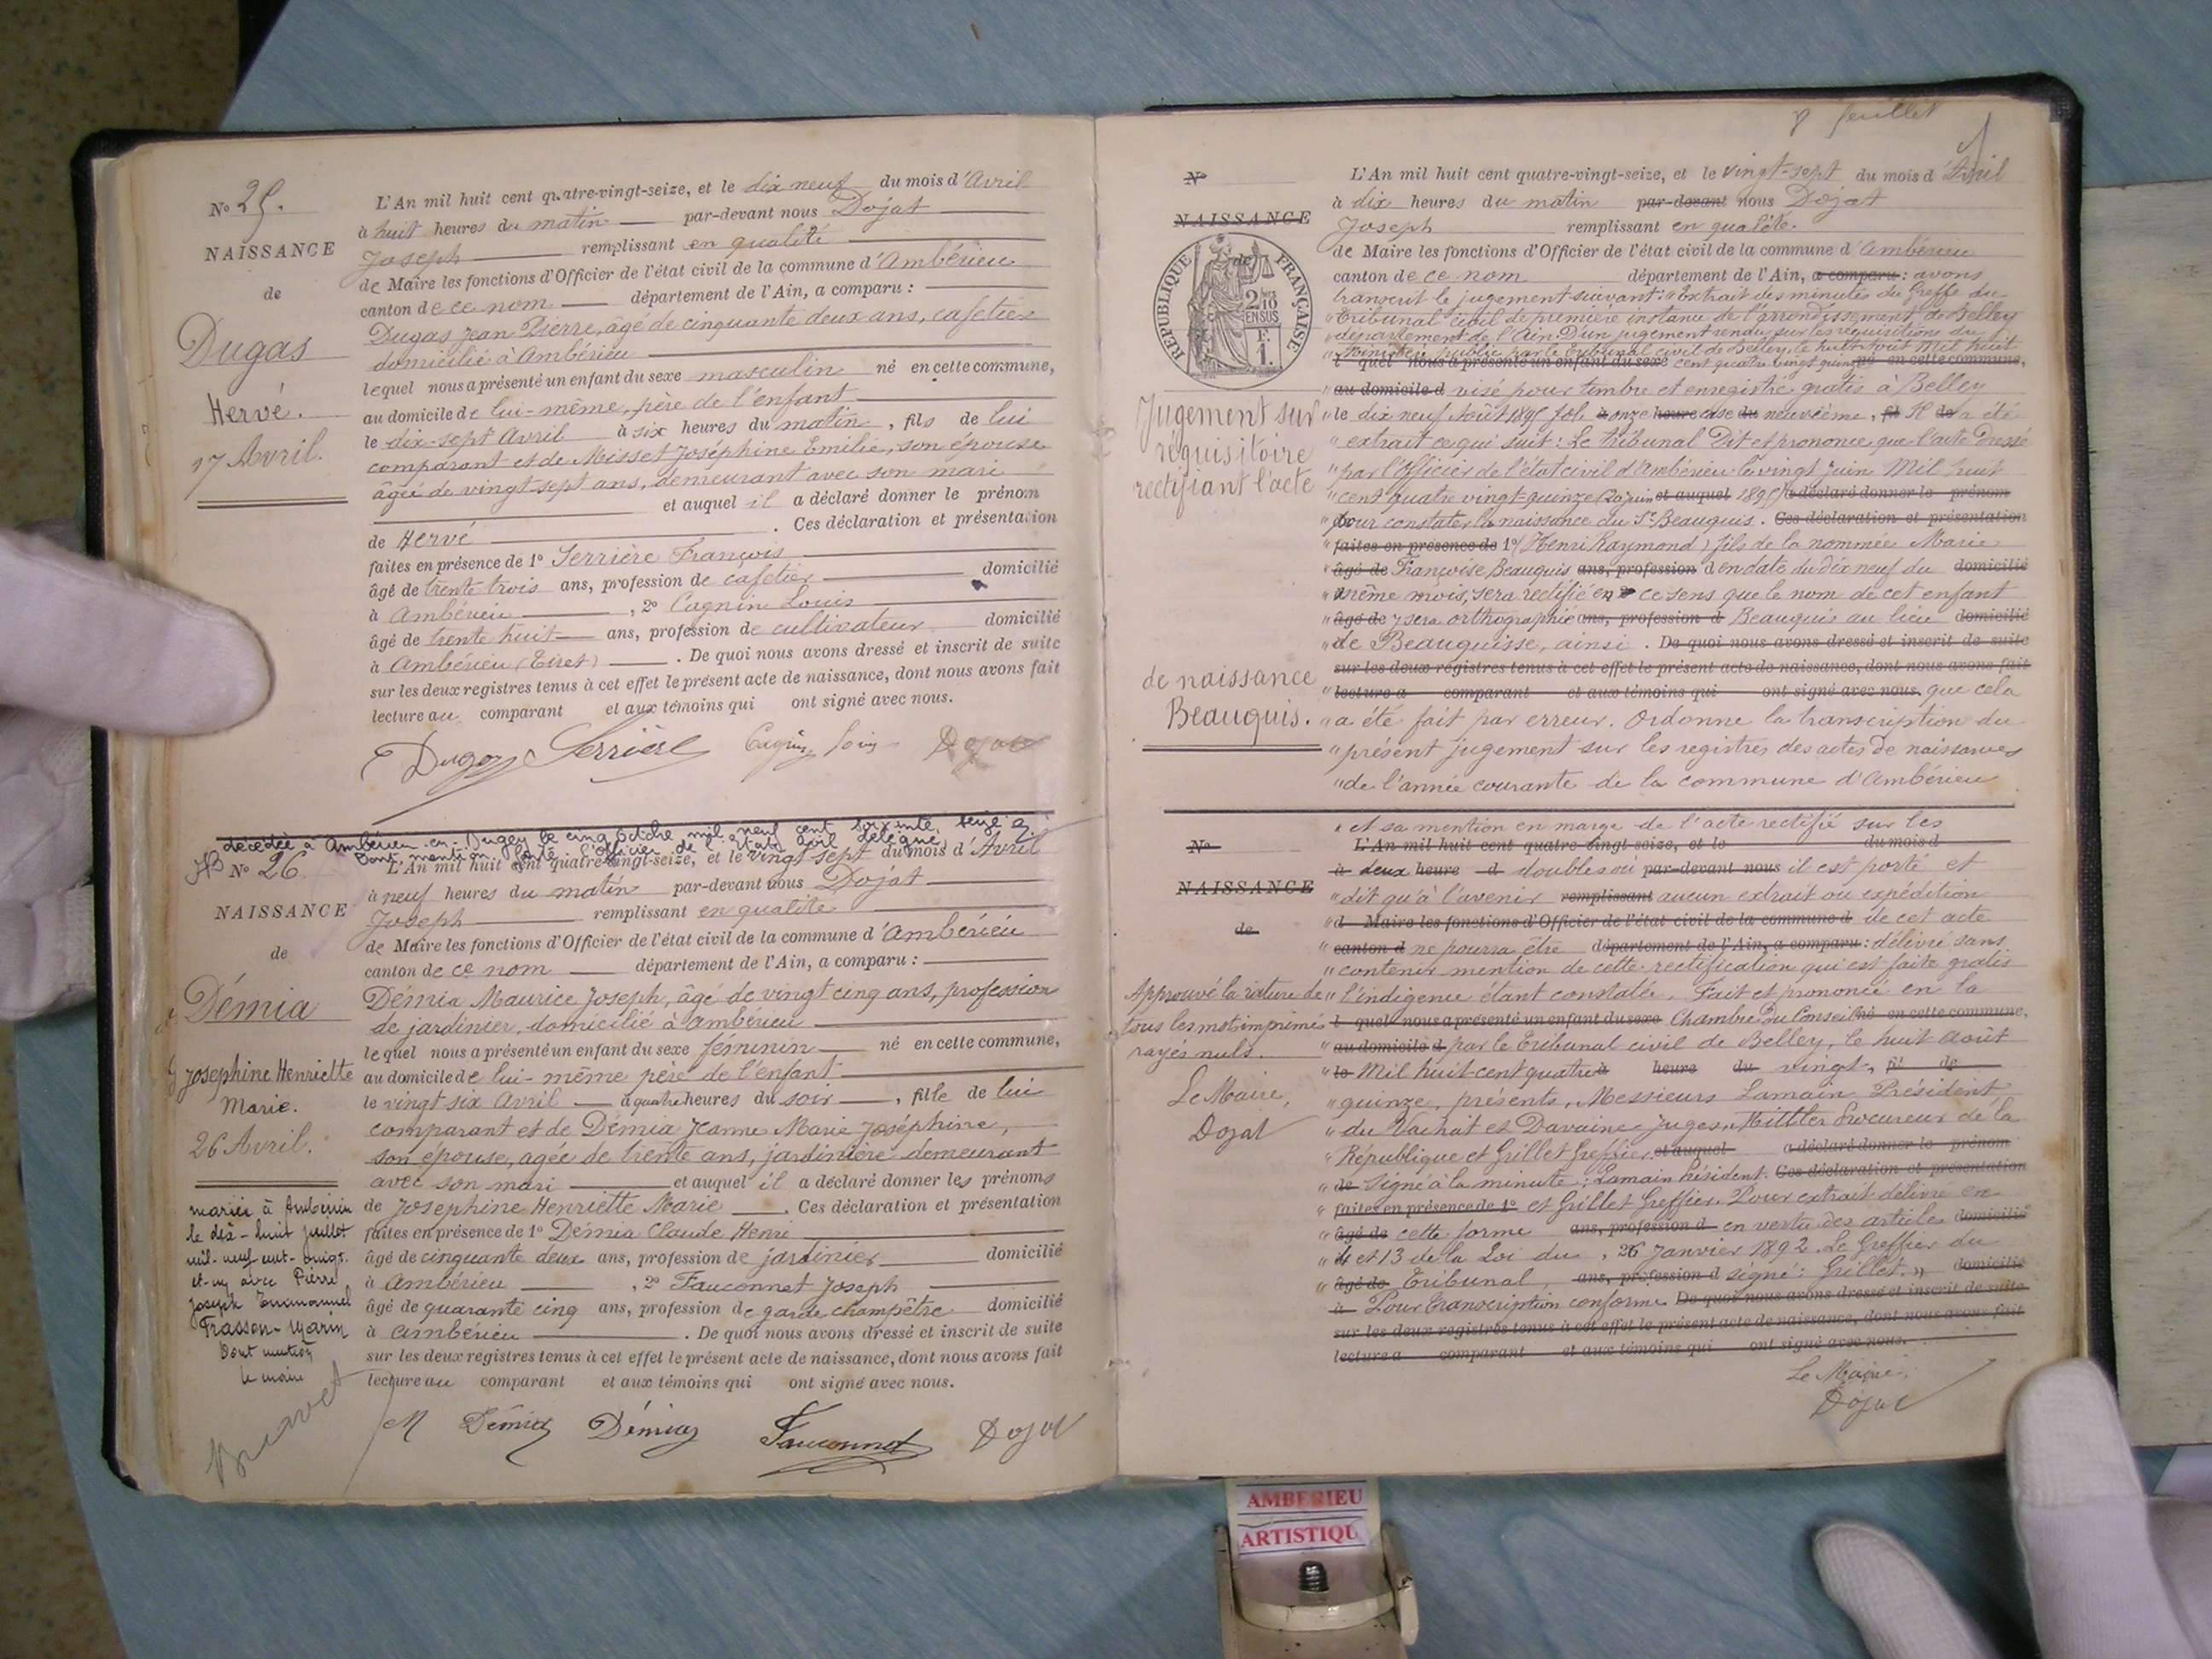 No 25.
NAISSANCE
de
Dugas
Hervé.
17 Avril.
L'An mil huit cent quatre-vingt-seize, et le dix neuf du mois d'Avril
à huit heures du matin par-devant nous Dojat
Joseph remplissant en qualité
de Maire les fonctions d'Officier de l'état civil de la commune d'Ambérieu
canton de ce nom département de l'Ain, a comparu :
Dugas Jean Pierre, âgé de cinquante deux ans, cafetier
domicilié à Ambérieu
lequel nous a présenté un enfant du sexe masculin né en cette commune,
au domicile de lui-même, père de l'enfant
le dix-sept Avril à six heures du matin, fils de lui
comparant et de Misset Joséphine Emilie, son épouse
âgée de vingt-sept ans, demeurant avec son mari
et auquel il a déclaré donner le prénom
de Hervé . Ces déclaration et présentation
faites en présence de 1° Serrière François
âgé de trente trois ans, profession de cafetier domicilié
à Ambérieu , 2° Cagnin Louis
âgé de trente huit ans, profession de cultivateur domicilié
à Ambérieu (Tiret) . De quoi nous avons dressé et inscrit de suite
sur les deux registres tenus à cet effet le présent acte de naissance, dont nous avons fait
lecture au comparant et aux témoins qui ont signé avec nous.
Dugas Serrière Cagnin Louis Dojat
décédée à Ambérieu-en-Bugey le cinq octobre mil neuf cent soixante seize
Dont mention faite l'Officier de l'Etat civil délégué,
No 26
NAISSANCE
de
Démia
Josephine Henriette
Marie.
26 Avril.
mariée à Ambérieu
le dix-huit juillet
mil-neuf cent-vingt-
et-un avec Pierre,
Joseph Emmanuel
Frasson-Marin
Dont mention
le maire
L'An mil huit cent quatre-vingt-seize, et le vingt sept du mois d'Avril
à neuf heures du matin par-devant nous Dojat
Joseph remplissant en qualité
de Maire les fonctions d'Officier de l'état civil de la commune d'Ambérieu
canton de ce nom département de l'Ain, a comparu :
Démia Maurice Joseph, âgé de vingt cinq ans, profession
de jardinier, domicilié à Ambérieu
lequel nous a présenté un enfant du sexe feminin né en cette commune,
au domicile de lui-même père de l'enfant
le vingt six Avril à quatre heures du soir, fille de lui
comparant et de Démia Jeanne Marie Joséphine,
son épouse, agée de trente ans, jardinière demeurant
avec son mari et auquel il a déclaré donner les prénoms
de Josephine Henriette Marie . Ces déclaration et présentation
faites en présence de 1° Démia Claude Henri
âgé de cinquante deux ans, profession de jardinier domicilié
à Ambérieu , 2° Fauconnet Joseph
âgé de quarante cinq ans, profession de garde champêtre domicilié
à Ambérieu . De quoi nous avons dressé et inscrit de suite
sur les deux registres tenus à cet effet le présent acte de naissance, dont nous avons fait
lecture au comparant et aux témoins qui ont signé avec nous.
M Démia Démia Fauconnet Dojat
8 feuillet
No
NAISSANCE
de
REPUBLIQUE FRANÇAISE
2/10 EN SUS
F. 1.
Jugement sur
réquisitoire
rectifiant l'acte
de naissance
Beauquis.
L'An mil huit cent quatre-vingt-seize, et le vingt-sept du mois d'Avril
à dix heures du matin par-devant nous Dojat
Joseph remplissant en qualité.
de Maire les fonctions d'Officier de l'état civil de la commune d'Ambérieu
canton de ce nom département de l'Ain, a comparu : avons
transcrit le jugement suivant : "Extrait des minutes du Greffe du
"Tribunal civil de première instance de l'arrondissement de Belley
"département de l'Ain. D'un jugement rendu sur les réquisitions du
"Ministère public par le Tribunal civil de Belley, le huit Août Mil huit
l quel nous a présenté un enfant du sexe cent quatre vingt quinze né en cette commune,
"au domicile d visé pour timbre et enregistré gratis à Belley
"le dix neuf Août 1895 fol. à onze heure case du neuvième, fil R de a été
"extrait ce qui suit : Le tribunal Dit et prononce que l'acte dressé
"par l'Officier de l'état civil d'Ambérieu le vingt Juin Mil huit
"cent quatre vingt-quinze (20 juin et auquel 1895) a déclaré donner le prénom
"pour constater la naissance du St Beauquis. Ces déclaration et présentation
"faites en présence de 1° (Henri Raymond) fils de la nommée Marie
"âgé de Françoise Beauquis ans, profession d en date du dix neuf du domicilié
"même mois, sera rectifié en 2° ce sens que le nom de cet enfant
"âgé de y sera orthographié ans, profession d Beauquis au lieu domicilié
"de Beauquisse, ainsi . De quoi nous avons dressé et inscrit de suite
sur les deux registres tenus à cet effet le présent acte de naissance, dont nous avons fait
"lecture a comparant et aux témoins qui ont signé avec nous. que cela
"a été fait par erreur. Ordonne la transcription du
"présent jugement sur les registres des actes de naissances
"de l'année courante de la commune d'Ambérieu
No
NAISSANCE
de
Approuvé la rature de
tous les mots imprimés
rayés nuls.
Le Maire,
Dojat
"et sa mention en marge de l'acte rectifié sur les
L'An mil huit cent quatre-vingt-seize, et le du mois d
à deux heure d doubles où par-devant nous il est porté et
"dit qu'à l'avenir remplissant aucun extrait ou expédition
"d Maire les fonctions d'Officier de l'état civil de la commune d de cet acte
"canton d ne pourra être département de l'Ain, a comparu : délivré sans
"contenir mention de cette rectification qui est faite gratis
"l'indigence étant constatée. Fait et prononcé en la
l quel nous a présenté un enfant du sexe Chambre du Conseil né en cette commune,
"au domicile d par le Tribunal civil de Belley, le huit Août
"le Mil huit-cent quatre à heure du vingt-, fil de
"quinze, présents, Messieurs Lamain Président
"du Vachat et Davaine Juges, Procureur de la
"République et Grillet Greffier et auquel a déclaré donner le prénom
"de Signé à la minute : Lamain Président. Ces déclaration et présentation
"faites en présence de 1° et Grillet Greffier. Pour extrait délivré en
"âgé de cette forme ans, profession d en vertu des articles domicilié
"4 et 13 de la Loi du , 26 Janvier 1892. Le Greffier du
"âgé de Tribunal, ans, profession d signé : Grillet." domicilié
à Pour transcription conforme De quoi nous avons dressé et inscrit de suite
sur les deux registres tenus à cet effet le présent acte de naissance, dont nous avons fait
lecture a comparant et aux témoins qui ont signé avec nous.
Le Maire,
Dojat
AMBERIEU
ARTISTIQU